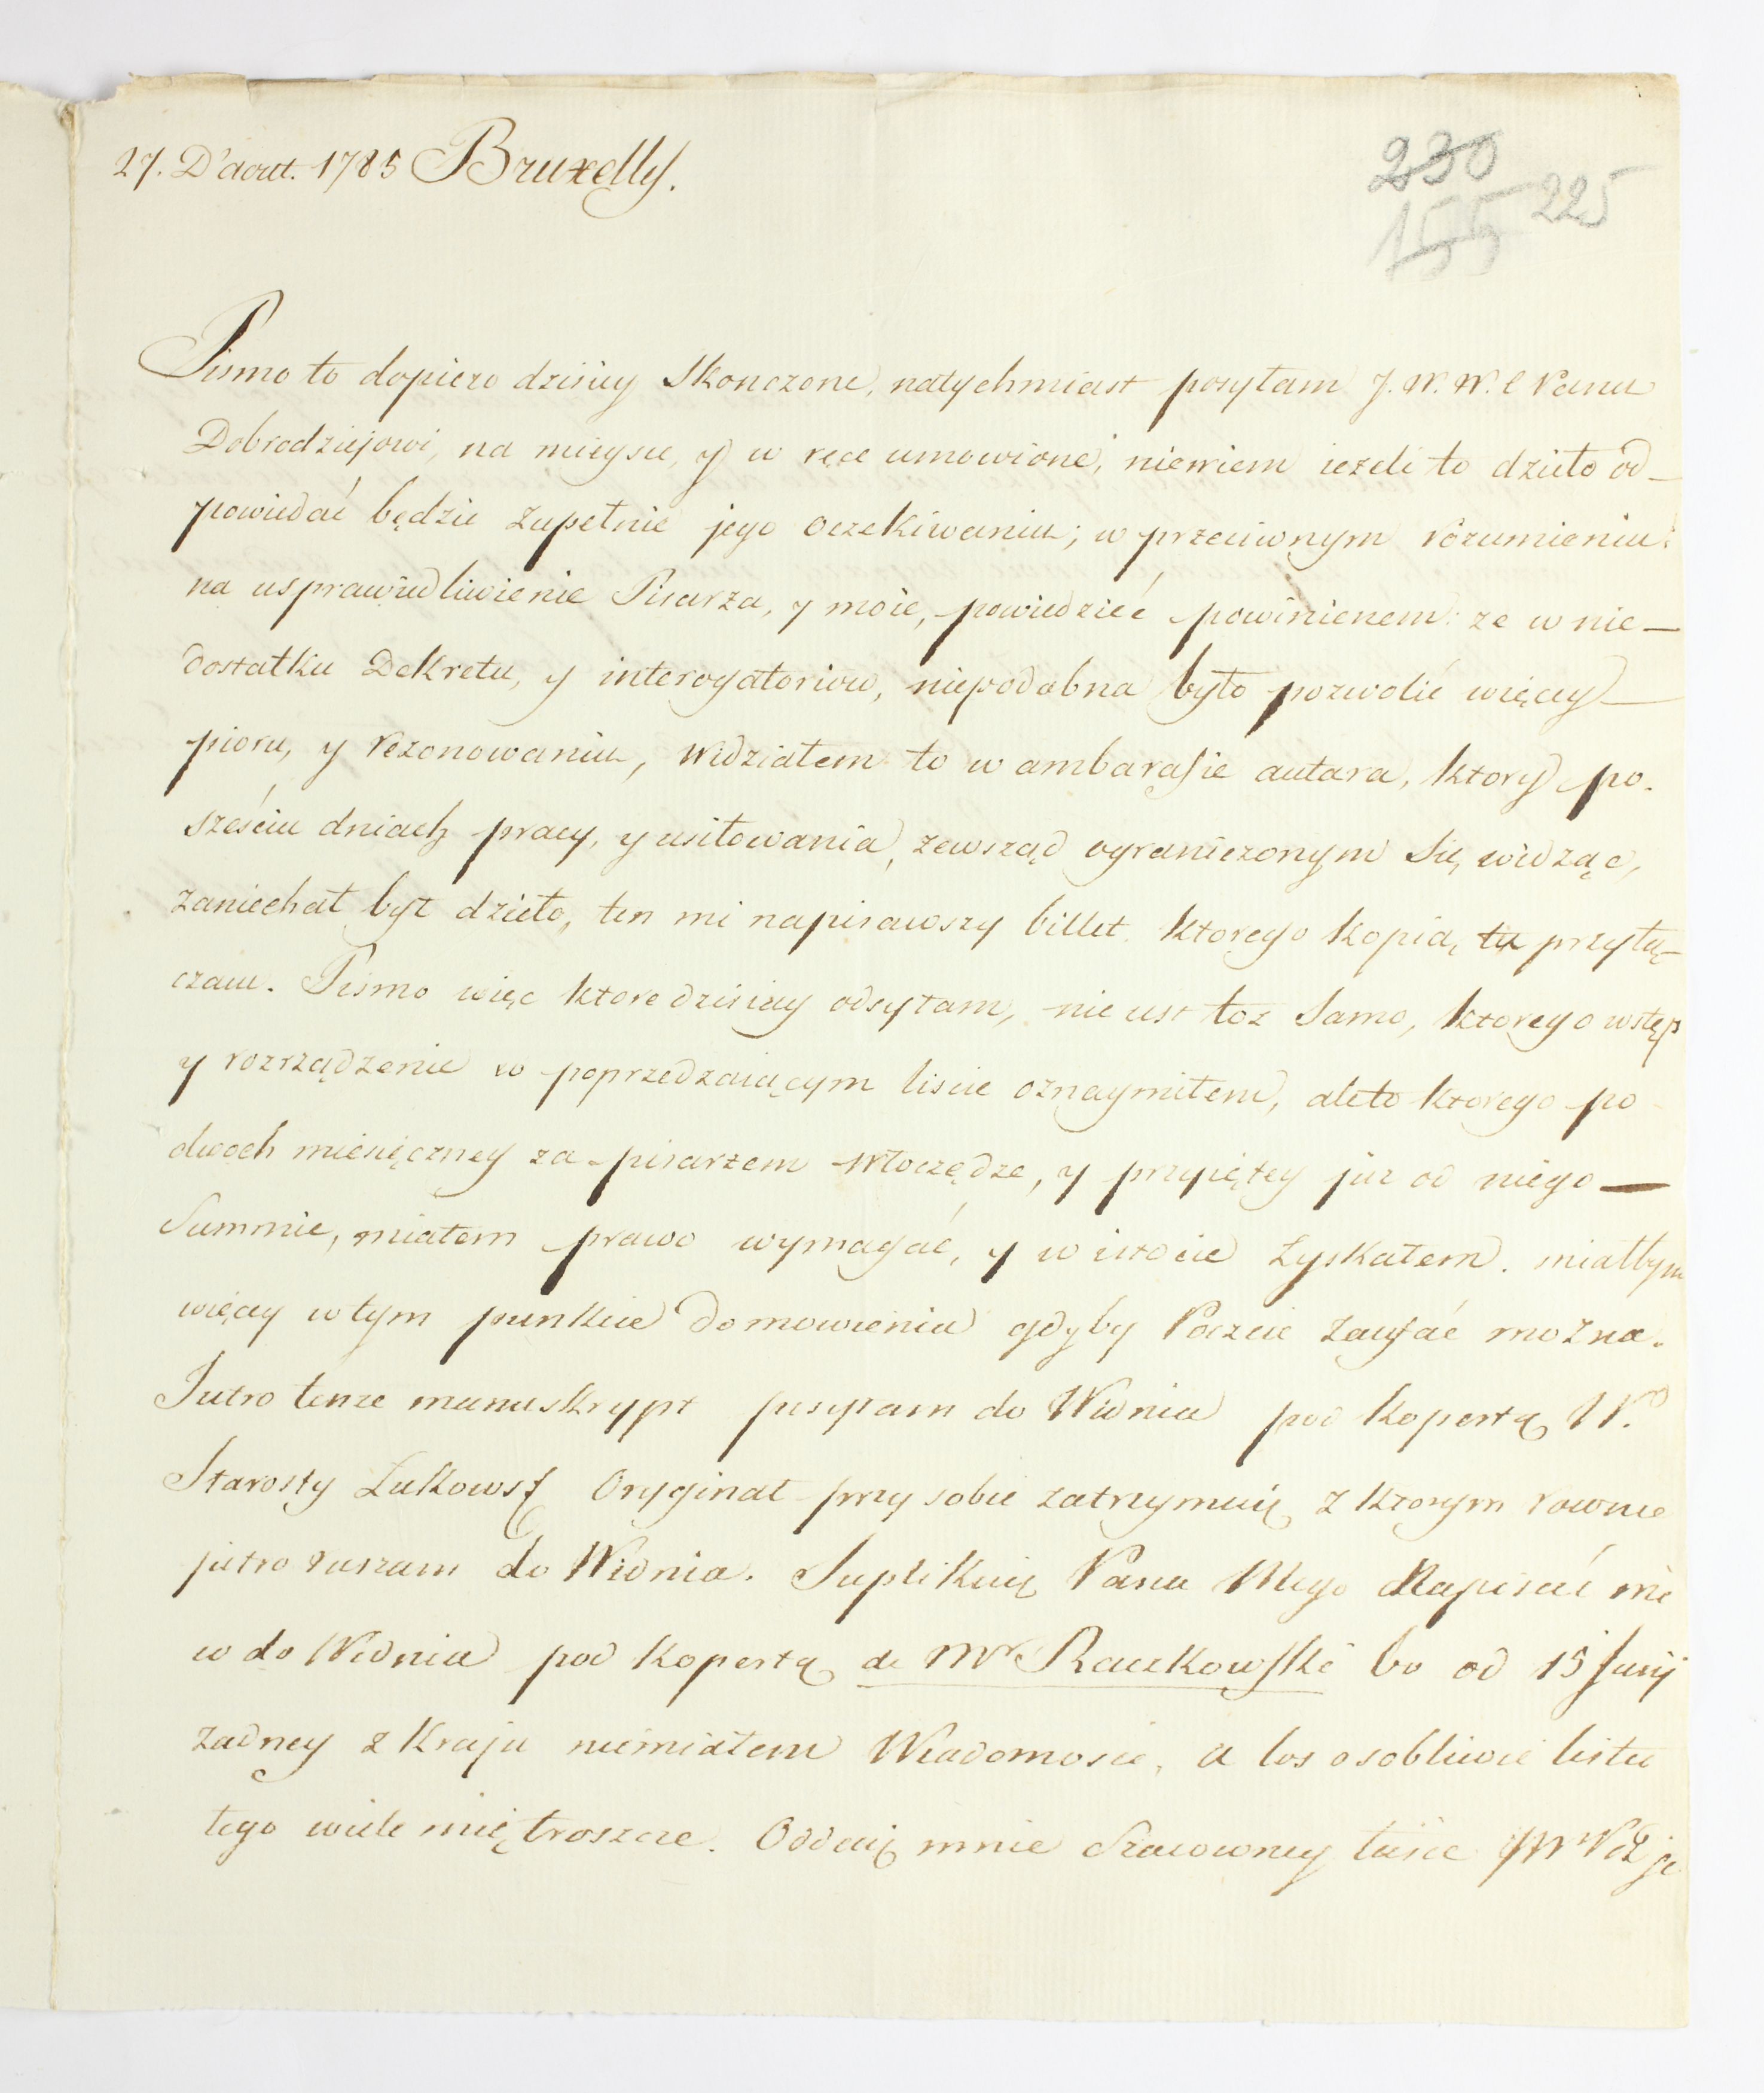 27. D'aout. 1785 Bruxelly.
230
155 225
Pismo to dopiero dzisiey skonczone, natychmiast posyłam J. W. W. Panu
Dobrodziejowi, na mieysce, y w ręce umowione, niewiem ieżeli to dzieło od–
powiedać będzie zupełnie jego oczekiwaniu; w przeciwnym rozumieniu:
na usprawiedliwienie Pisarza, y moie, powiedzieć powinienem: ze w nie–
dostatku Dekretu, y interogatoriow, niepodobna było pozwolić więcey
pioru, y rezonowaniu, widziałem to w ambarasie autara, ktory po.
sześciu dniach pracy, y usiłowania, zewsząd ograniczonym się widząc,
zaniechał był dzieło, ten mi napisawszy billet ktorego kopią tu przyłą–
czam. Pismo więc ktore dzisiay odsyłam, nie iest toz samo, ktorego wstęp
y rozrządzenie w poprzedzaiącym liscie oznaymiłem, ale to ktorego po
dwoch miesięczney za pisarzem włoczędze, y przyiętey juz od niego —
Summie, miałem prawo wymagać, y w istocie zyskałem. miałbym
więcey w tym punkcie domowienia gdyby Poczcie zaufać mozna.
Jutro tenze manuskrypt posyłam do Widnia pod kopertą W.
Starosty Łukowsk Oryginał przy sobie zatrzymuię z ktorym rownie
jutro ruszam do Widnia. Suplikuię Pana Mego Napisać mi
w do Widnia pod kopertą de Mr Raczkowski bo od 15 Junij
zadney z Kraju niemiałem Wiadomosci, a los osobliwie listu
tego wiele mię troszcze. Oddaię mnie Szacowney łasce JW